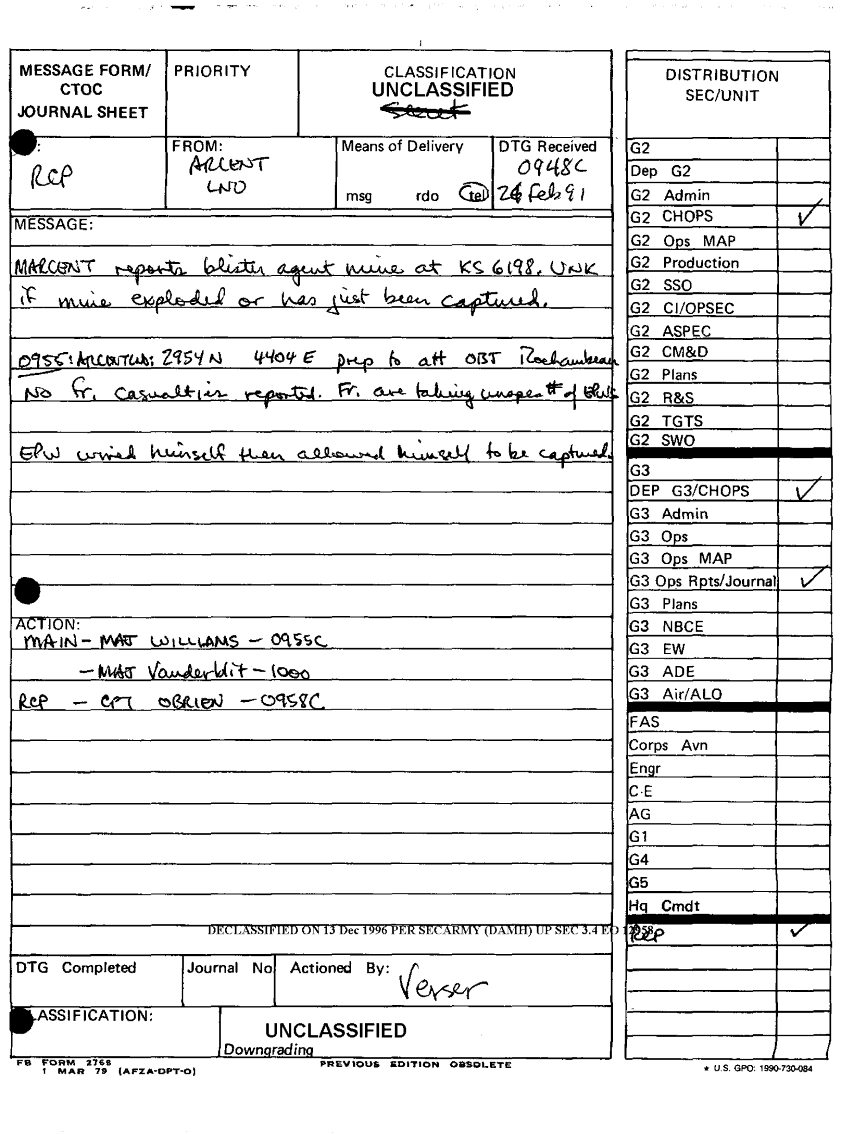 MESSAGE FORM/
CTOC
JOURNAL SHEET
PRIORITY
CLASSIFICATION
UNCLASSIFIED
Secret
:
RCP
FROM:
ARCENT
LNO
Means of Delivery
msg rdo tel
DTG Received
0948C
24 Feb 91
MESSAGE:
MARCENT reports blister agent mine at KS 6198. UNK
if mine exploded or has just been captured.
0955: ARCENT LNO: 2954 N 4404 E prep to att OBT Rochambeau
No Fr. casualties reported. Fr. are taking unspec # of EPWs
EPW wired himself then allowed himself to be captured.
ACTION:
MAIN - MAJ WILLIAMS - 0955C
- MAJ Vanderbilt - 1000
RCP - CPT OBRIEN - 0958C
DECLASSIFIED ON 13 Dec 1996 PER SECARMY (DAMH) UP SEC 3.4 EO 12958
DTG Completed
Journal No
Actioned By:
Verser
LASSIFICATION:
UNCLASSIFIED
Downgrading
FB FORM 2768
1 MAR 79 (AFZA-DPT-O)
PREVIOUS EDITION OBSOLETE
DISTRIBUTION
SEC/UNIT
G2
Dep G2
G2 Admin
G2 CHOPS ✓
G2 Ops MAP
G2 Production
G2 SSO
G2 CI/OPSEC
G2 ASPEC
G2 CM&D
G2 Plans
G2 R&S
G2 TGTS
G2 SWO
G3
DEP G3/CHOPS ✓
G3 Admin
G3 Ops
G3 Ops MAP
G3 Ops Rpts/Journal ✓
G3 Plans
G3 NBCE
G3 EW
G3 ADE
G3 Air/ALO
FAS
Corps Avn
Engr
C-E
AG
G1
G4
G5
Hq Cmdt
RCP ✓
★ U.S. GPO: 1990-730-084